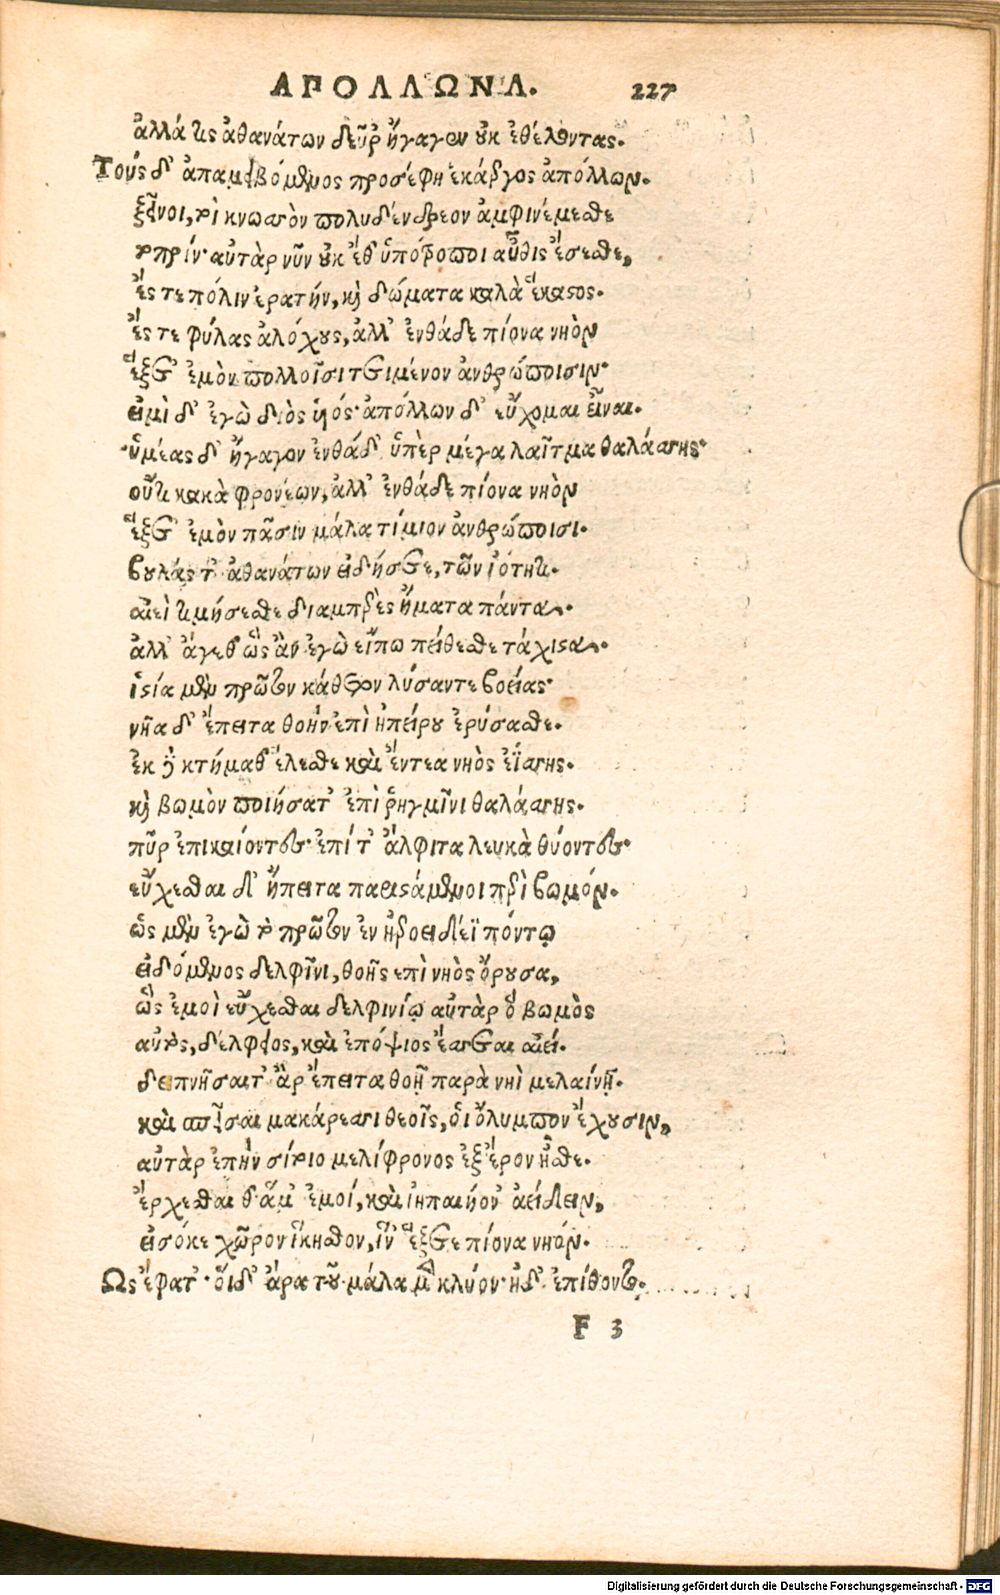 ΑΠΟΛΛΩΝΑ. 227
ἀλλά τις ἀθανάτων δεῦρ᾽ ἤγαγεν οὐκ ἐθέλοντας.
Τοὺς δ᾽ ἀπαμειβόμενος προσέφη ἑκάεργος ἀπόλλων.
ξεῖνοι, τοὶ κνωσσὸν πολυδένδρεον ἀμφινέμεσθε
τοπρίν· αὐτὰρ νῦν οὐκ ἔθ᾽ ὑπότροποι αὖθις ἔσεσθε,
ἔς τε πόλιν ἐρατήν, καὶ δώματα καλὰ ἕκαστος.
ἔς τε φύλας ἀλόχους, ἀλλ᾽ ἐνθάδε πίονα νηὸν
ἕξετ᾽ ἐμὸν πολλοῖσι τετιμένον ἀνθρώποισιν·
εἰμὶ δ᾽ ἐγὼ διὸς υἱός· ἀπόλλων δ᾽ εὔχομαι εἶναι.
ὑμέας δ᾽ ἤγαγον ἐνθάδ᾽ ὑπὲρ μέγα λαῖτμα θαλάσσης·
οὔτι κακὰ φρονέων, ἀλλ᾽ ἐνθάδε πίονα νηὸν
ἕξετ᾽ ἐμὸν πᾶσιν μάλα τίμιον ἀνθρώποισι.
βουλάς τ᾽ ἀθανάτων εἰδήσετε, τῶν ἰότητι.
αἰεὶ τιμήσεσθε διαμπερὲς ἤματα πάντα.
ἀλλ᾽ ἄγεθ᾽ ὡς ἂν ἐγὼ εἴπω πείθεσθε τάχιστα.
ἱστία μὲν πρῶτον κάθετον λύσαντε βοείας·
νῆα δ᾽ ἔπειτα θοὴν ἐπὶ ἠπείρου ἐρύσασθε.
ἐκ δὲ κτήμαθ᾽ ἕλεσθε καὶ ἔντεα νηὸς ἐΐσσης.
καὶ βωμὸν ποιήσατ᾽ ἐπὶ ῥηγμῖνι θαλάσσης.
πῦρ ἐπικαίοντες· ἐπί τ᾽ ἄλφιτα λευκὰ θύοντες·
εὔχεσθαι δ᾽ ἤπειτα παριστάμενοι περὶ βωμόν.
ὡς μὲν ἐγὼ τὸ πρῶτον ἐν ἠεροειδέϊ πόντῳ
εἰδόμενος δελφῖνι, θοῆς ἐπὶ νηὸς ὄρουσα,
ὣς ἐμοὶ εὔχεσθαι δελφινίῳ αὐτὰρ ὁ βωμὸς
αὐτὸς, δέλφειος, καὶ ἐπόψιος ἔσσεται αἰεί.
δειπνῆσαί τ᾽ ἂρ ἔπειτα θοῇ παρὰ νηὶ μελαίνῃ.
καὶ σπεῖσαι μακάρεσσι θεοῖς, οἳ ὄλυμπον ἔχουσιν,
αὐτὰρ ἐπὴν σίτοιο μελίφρονος ἐξ ἔρον ἧσθε.
ἔρχεσθαί θ᾽ ἅμ᾽ ἐμοί, καὶ ἰηπαιήον᾽ ἀείδειν,
εἰσόκε χῶρον ἵκησθον, ἵν᾽ ἕξετε πίονα νηόν.
Ὣς ἔφατ᾽· οἱ δ᾽ ἄρα τοῦ μάλα μὲν κλύον· ἠδ᾽ ἐπίθοντο.
F 3
Digitalisierung gefördert durch die Deutsche Forschungsgemeinschaft - DFG